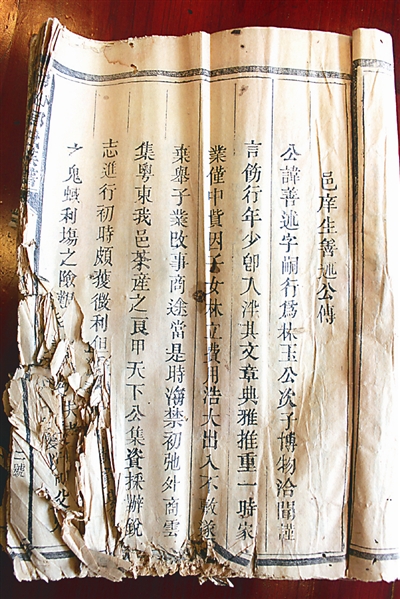 邑庠生善述公傳
公諱善述字嗣行爲林玉公次子博物洽聞謹
言飭行年少卽入泮其文章典雅推重一時家
業僅中貲因子女林立費用浩大出入不敷遂
棄舉子業改事商途當是時海禁初弛外商雲
集粵東我邑茶產之良甲天下公集資採辦銳
志進行初時頗獲微利但
塊蟻利塲之險艱
二號